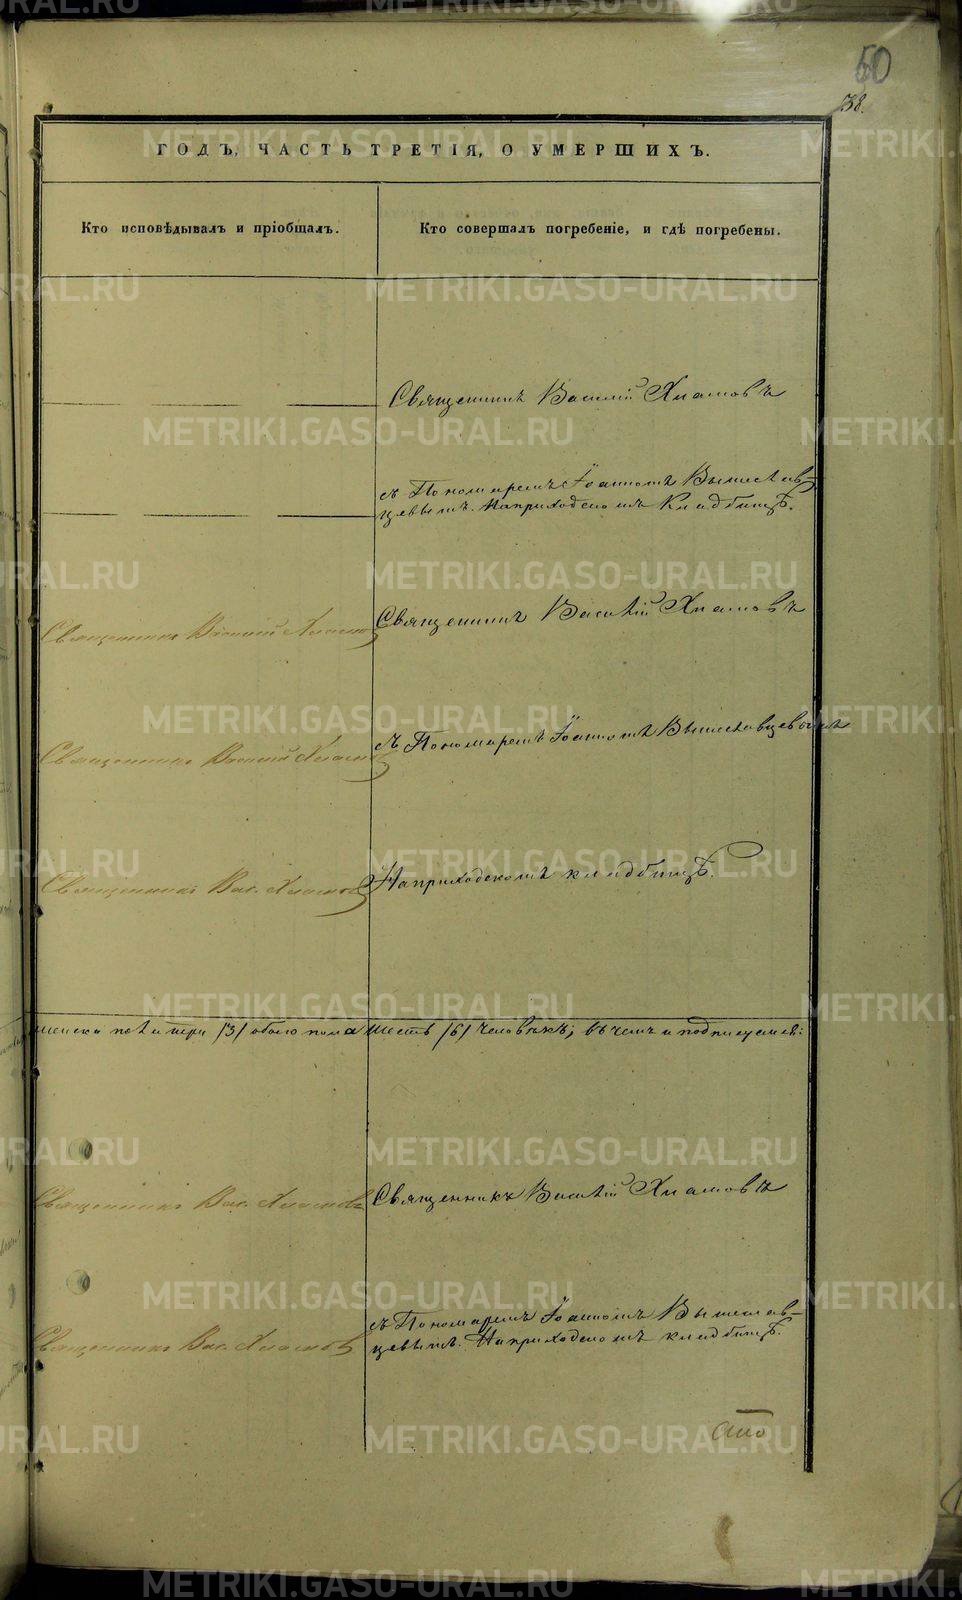 60
38.
ГОДЪ, ЧАСТЬ ТРЕТІЯ, О УМЕРШИХЪ.
Кто исповѣдывалъ и пріобщалъ.
Кто совершалъ погребеніе, и гдѣ погребены.
Священникъ Василій Хламовъ
съ Пономаремъ Іоанномъ Вышеслав-
цевымъ. На приходскомъ кладбищѣ.
Священникъ Василій Хламовъ
Священникъ Василій Хламовъ
съ Пономаремъ Іоанномъ Вышеславцевымъ
Священникъ Василій Хламовъ
На приходскомъ кладбищѣ.
Священникъ Вас. Хламовъ
женска по три /3/ обоего пола шесть /6/ человѣкъ; въ чемъ и подписуемся:
Священникъ Василій Хламовъ
Священникъ Вас. Хламовъ
съ Пономаремъ Іоанномъ Вышеслав-
цевымъ. На приходскомъ кладбищѣ.
Священникъ Вас. Хламовъ
METRIKI.GASO-URAL.RU